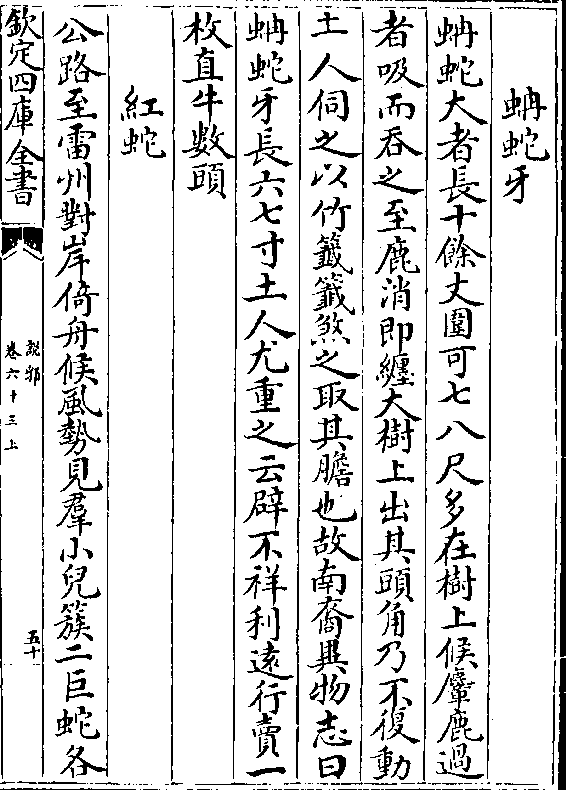 蚺蛇牙
蚺蛇大者長十餘丈圍可七八尺多在樹上候麞鹿過
者吸而吞之至鹿消即纏大樹上出其頭角乃不復動
土人伺之以竹籤籤煞之取其膽也故南裔異物志曰
蚺蛇牙長六七寸土人尤重之云辟不祥利遠行賣一
枚直牛數頭
紅蛇
公路至雷州對岸倚舟候風勢見羣小兒簇二巨蛇各
欽定四庫全書
說郛
卷六十三上
五十